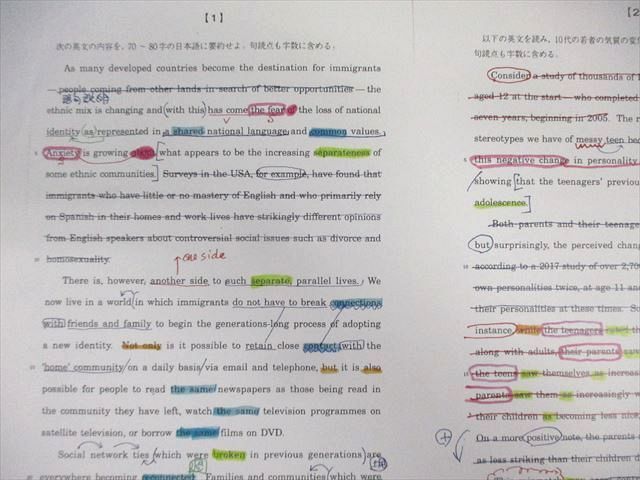 【1】
次の英文の内容を，70～80字の日本語に要約せよ。句読点も字数に含める。
As many developed countries become the destination for immigrants
—people coming from other lands in search of better opportunities—the
ethnic mix is changing and with this has come the fear of the loss of national
identity as represented in a shared national language and common values.
5 Anxiety is growing about what appears to be the increasing separateness of
some ethnic communities. Surveys in the USA, for example, have found that
immigrants who have little or no mastery of English and who primarily rely
on Spanish in their homes and work lives have strikingly different opinions
from English speakers about controversial social issues such as divorce and
10 homosexuality.
one side
There is, however, another side to such separate, parallel lives. We
now live in a world in which immigrants do not have to break connections
with friends and family to begin the generations-long process of adopting
a new identity. Not only is it possible to retain close contact with the
15 'home' community on a daily basis via email and telephone, but it is also
possible for people to read the same newspapers as those being read in
the community they have left, watch the same television programmes on
satellite television, or borrow the same films on DVD.
Social network ties which were broken in previous generations are
everywhere becoming reconnected. Families and communities which were
【2
以下の英文を読み，10代の若者の気質の変
句読点も字数に含める。
Consider a study of thousands of
aged 12 at the start—who completed
seven years, beginning in 2005. The r
stereotypes we have of messy teen bec
5 this negative change in personality
showing that the teenagers' previou
adolescence.
Both parents and their teenage
but surprisingly, the perceived chang
10 according to a 2017 study of over 2,70
own personalities twice, at age 11 and
their personalities at these times. So
instance, while the teenagers rated
along with adults, their parents saw
15 the teens saw themselves as increas
parents saw them as increasingly
their children as becoming less nice,
On a more positive note, the parents
as less striking than their children d